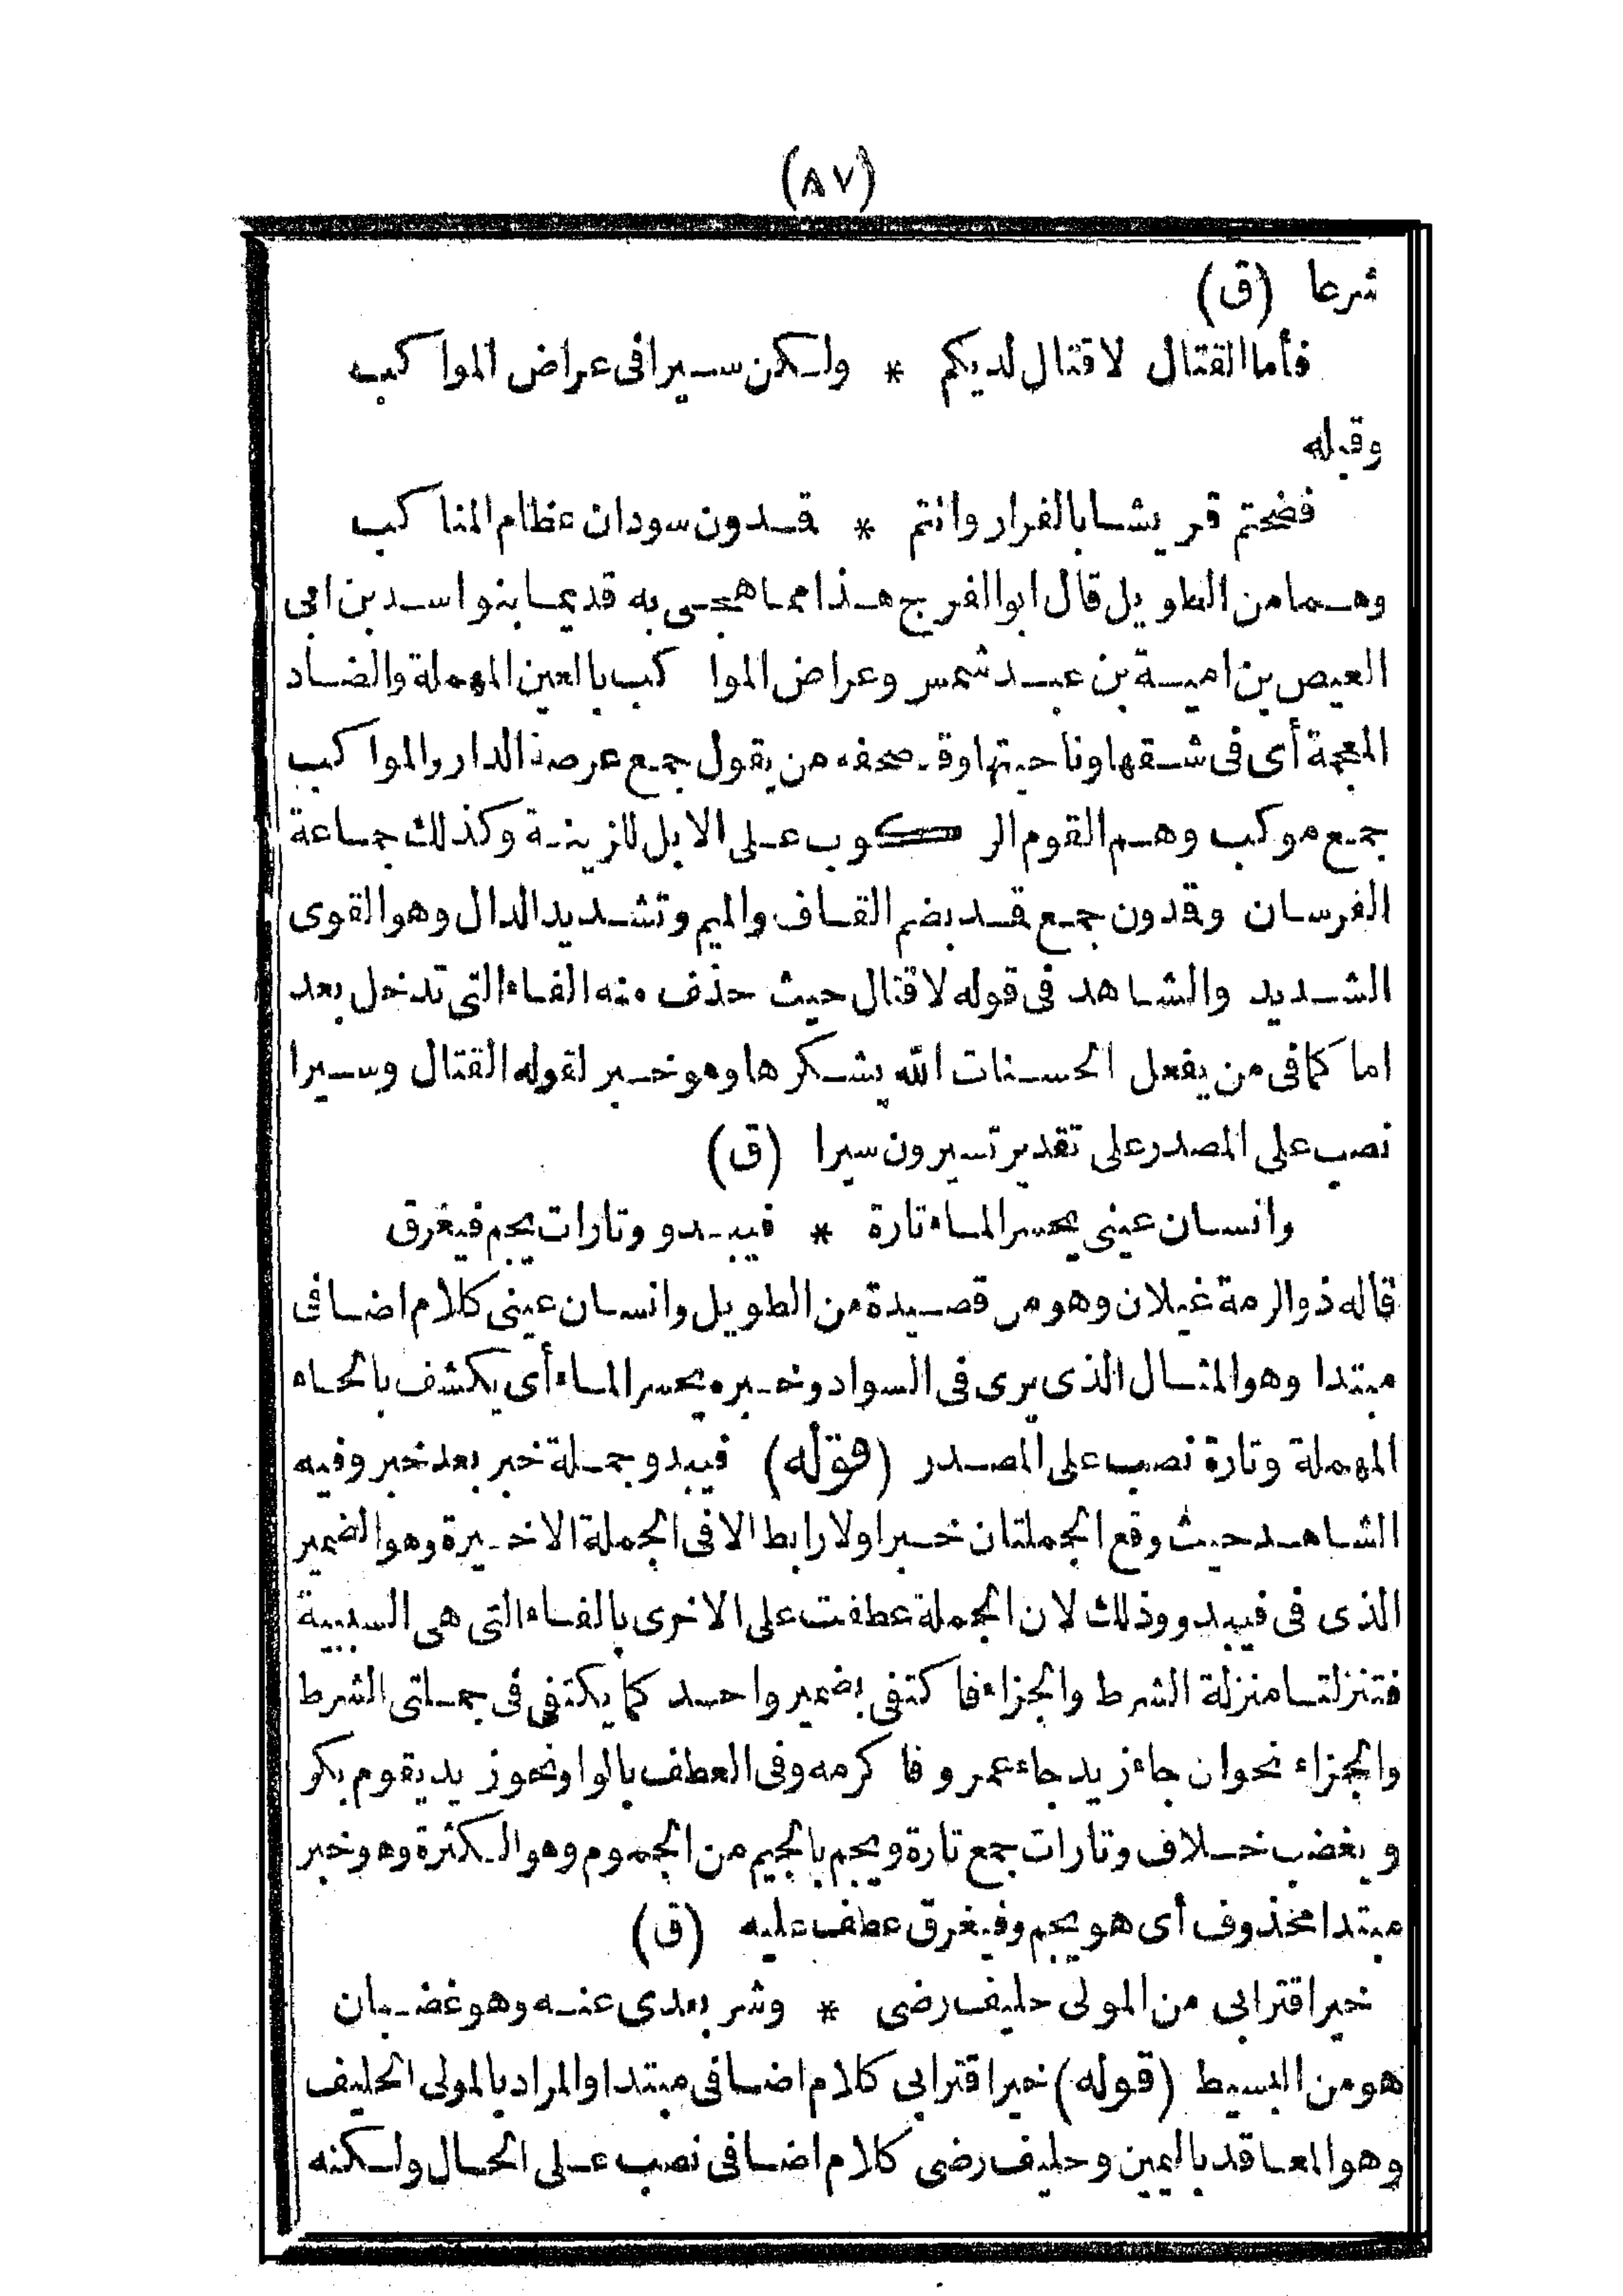 (٨٧)
شرعا (ق)
فأما القتال لا قتال لديكم * ولكن سيرا فى عراض المواكب
وقبله
فضحتم قريشا بالفرار وانتم * قمدون سودان عظام المناكب
وهما من الطويل قال ابو الفرج هذا مما هجى به قديما بنو اسد بن ابى
العيص بن امية بن عبد شمس وعراض المواكب بالعين المهملة والضاد
المعجمة أى فى شقها وناحيتها وقد صحفه من يقول جمع عرصة الدار والمواكب
جمع موكب وهم القوم الركوب على الابل للزينة وكذلك جماعة
الفرسان وقدون جمع قمد بضم القاف والميم وتشديد الدال وهو القوى
الشديد والشاهد فى قوله لا قتال حيث حذف منه الفاء التى تدخل بعد
اما كما فى من يفعل الحسنات الله يشكرها وهو خبر لقوله القتال وسيرا
نصب على المصدر على تقدير تسيرون سيرا (ق)
وانسان عينى يحسر الماء تارة * فيبدو وتارات يجم فيغرق
قاله ذو الرمة غيلان وهو من قصيدة من الطويل وانسان عينى كلام اضافى
مبتدا وهو المثال الذى يرى فى السواد وخبره يحسر الماء أى يكشف بالحاء
المهملة وتارة نصب على المصدر (قوله) فيبدو جملة خبر بعد خبر وفيه
الشاهد حيث وقع الجملتان خبرا ولا رابط الا فى الجملة الاخيرة وهو الضمير
الذى فى فيبدو وذلك لان الجملة عطفت على الاخرى بالفاء التى هى السببية
فتنزلتا منزلة الشرط والجزاء فاكتفى بضمير واحد كما يكتفى فى جملتى الشرط
والجزاء نحو ان جاء زيد جاء عمرو فاكرمه وفى العطف بالواو نحو زيد يقوم بكر
ويغضب خلاف وتارات جمع تارة ويجم بالجيم من الجموم وهو الكثرة وهو خبر
مبتدا مخذوف أى هو يجم وفيغرق عطف عليه (ق)
خير اقترابى من المولى حليف رضى * وشر بعدى عنه وهو غضبان
هو من البسيط (قوله) خير اقترابى كلام اضافى مبتدا والمراد بالمولى الحليف
وهو المعاقد باليمين وحليف رضى كلام اضافى نصب على الحال ولكنه